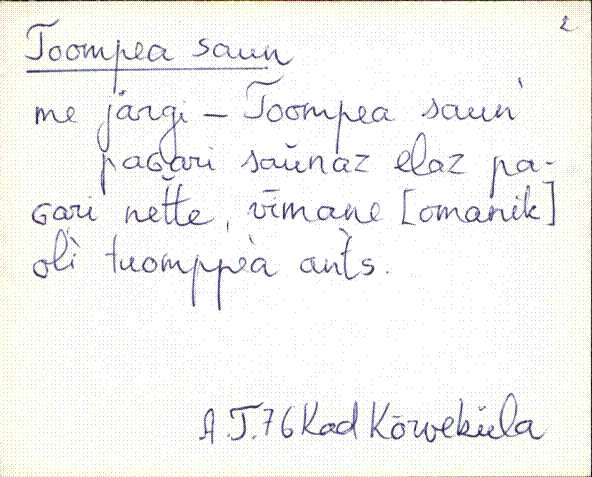 2
Toompea saun
me järgi – Toompea saun
paGari saùnaz elaz pa-
Gari net't'e, vīmane [omanik]
oli tuomppèa an̆t's.
A.J.76 Kad Kõrveküla